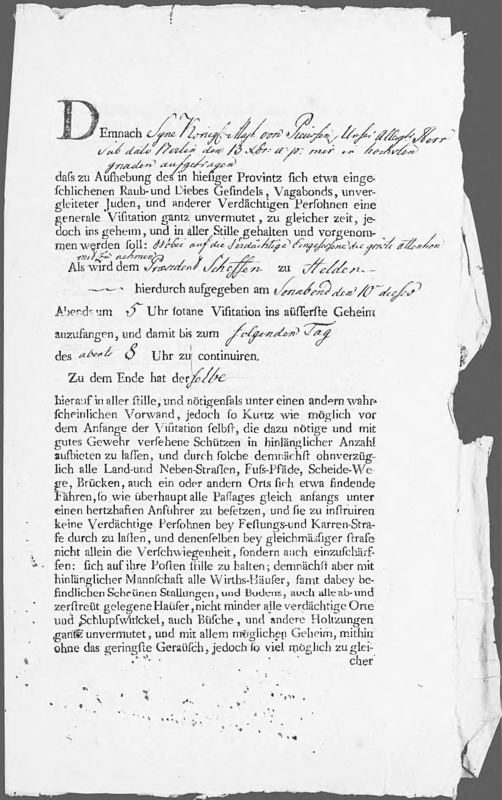 DEmnach Seine Königl. Mayt. von Preussen, Unser Allergn. Herr
sub dato Berlin den 13 xbr. a. p. mir in höchsten
gnaden aufgetragen
dass zu Aufhebung des in hiesiger Provintz sich etwa einge-
schlichenen Raub- und Diebes Gesindels, Vagabonds, unver-
gleiteter Juden, und anderer Verdächtigen Persohnen eine
generale Visitation gantz unvermutet, zu gleicher zeit, je-
doch ins geheim, und in aller Stille gehalten und vorgenom-
men werden soll: Wobei auf die Verdächtige Eingesessene die gröste attention
mit zu nehmen
Als wird dem Scheffen zu Helden
hierdurch aufgegeben am Sonabend den 10 dieses
Abends um 5 Uhr sotane Visitation ins äusserste Geheim
anzufangen, und damit bis zum folgenden Tag
des abents 8 Uhr zu continuiren.
Zu dem Ende hat derselbe
hierauf in aller stille, und nötigenfals unter einen andern wahr-
scheinlichen Vorwand, jedoch so Kurtz wie möglich vor
dem Anfange der Visitation selbst, die dazu nötige und mit
gutes Gewehr versehene Schützen in hinlänglicher Anzahl
aufbieten zu lassen, und durch solche demnächst ohnverzüg-
lich alle Land-und Neben-Strassen, Fuss-Pfäde, Scheide-We-
ge, Brücken, auch ein oder andern Orts sich etwa findende
Fähren, so wie überhaupt alle Passages gleich anfangs unter
einen hertzhaften Anfuhrer zu besetzen, und sie zu instruiren
keine Verdächtige Persohnen bey Festungs-und Karren-Stra-
fe durch zu lassen, und denenselben bey gleichmässiger strafe
nicht allein die Verschwiegenheit, sondern auch einzuschärf-
fen: sich auf ihre Posten stille zu halten; demnächst aber mit
hinlänglicher Mannschaft alle Wirths-Häuser, samt dabey be-
findlichen Scheünen Stallungen, und Bodens, auch alle ab- und
zerstreüt gelegene Haüser, nicht minder alle verdächtige Orte
und Schlupfwinckel, auch Büsche, und andere Holtzungen
gantz unvermutet, und mit allem möglichen Geheim, mithin
ohne das geringste Geraüsch, jedoch so viel möglich zu glei-
cher